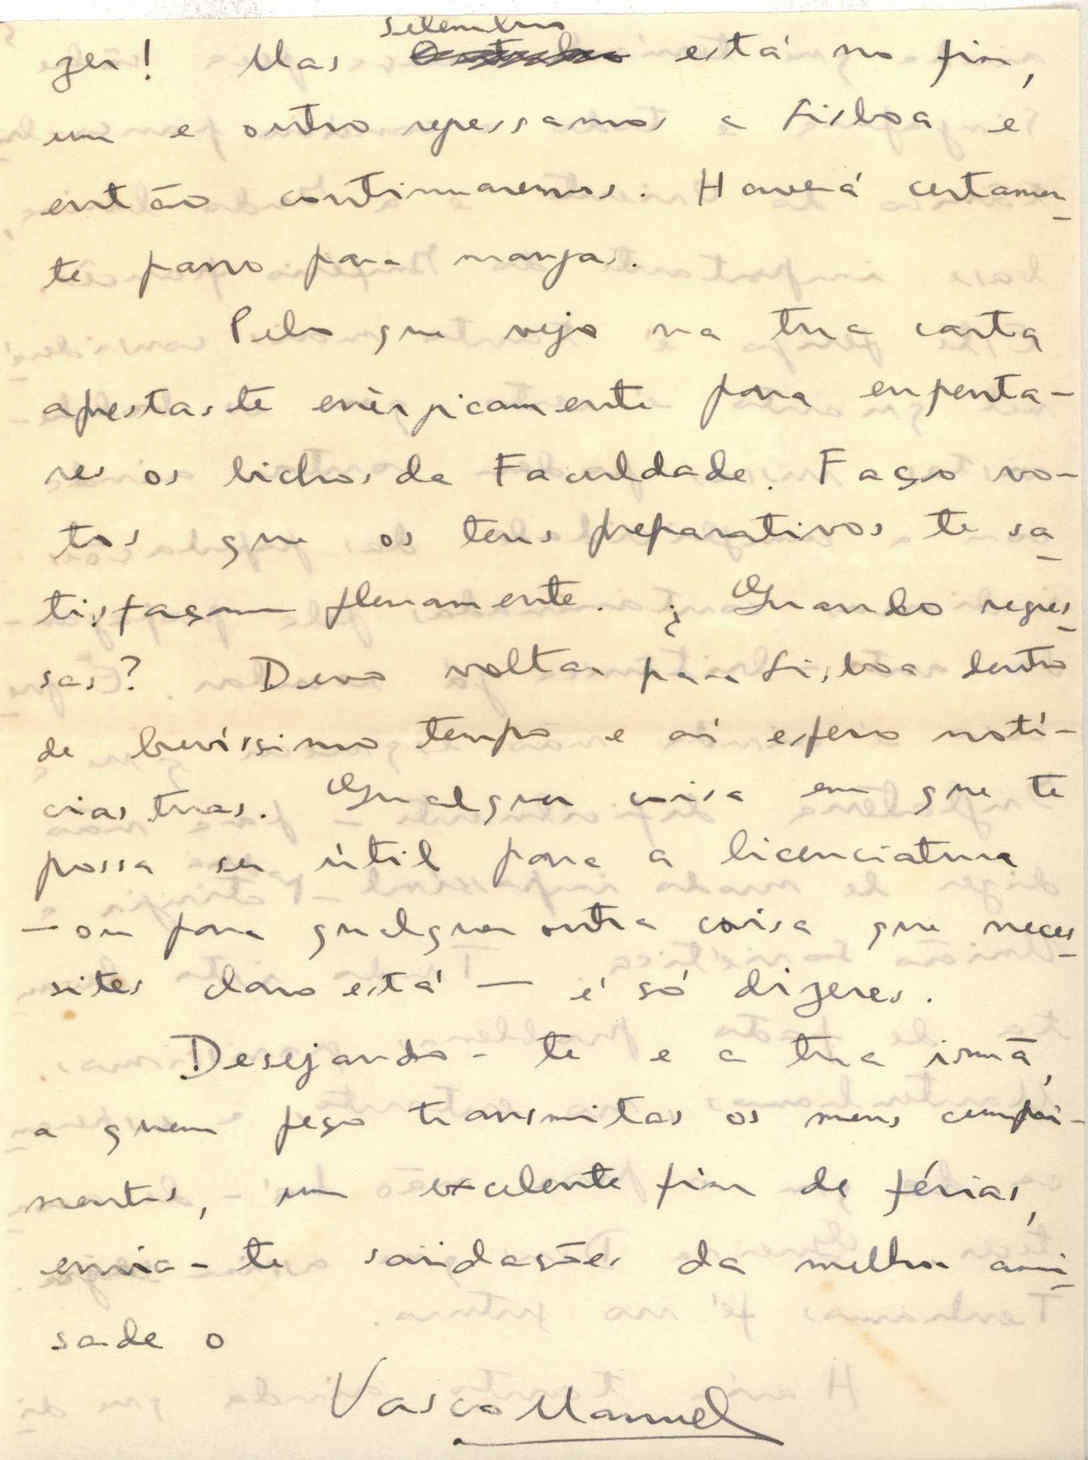 Setembro
zer! Mas Outubro está no fim,
um e outro regressamos a Lisboa e
então continuaremos. Haverá certamen-
te pano para mangas.
Pelo que vejo na tua carta
aprestaste enèrgicamente para enfrenta-
res os bichos da Faculdade. Faço vo-
tos que os teus preparativos te sa-
tisfaçam plenamente. ¿ Quando regres-
sas? Devo voltar para Lisboa dentro
de brevíssimo tempo e aí espero notí-
cias tuas. Qualquer coisa em que te
possa ser útil para a licenciatura
— ou para qualquer outra coisa que neces-
sites claro está — é só dizeres.
Desejando-te e a tua irmã,
a quem peço transmitas os meus cumpri-
mentos, um excelente fim de férias,
envia-te saüdações da melhor ami-
sade o
Vasco Manuel